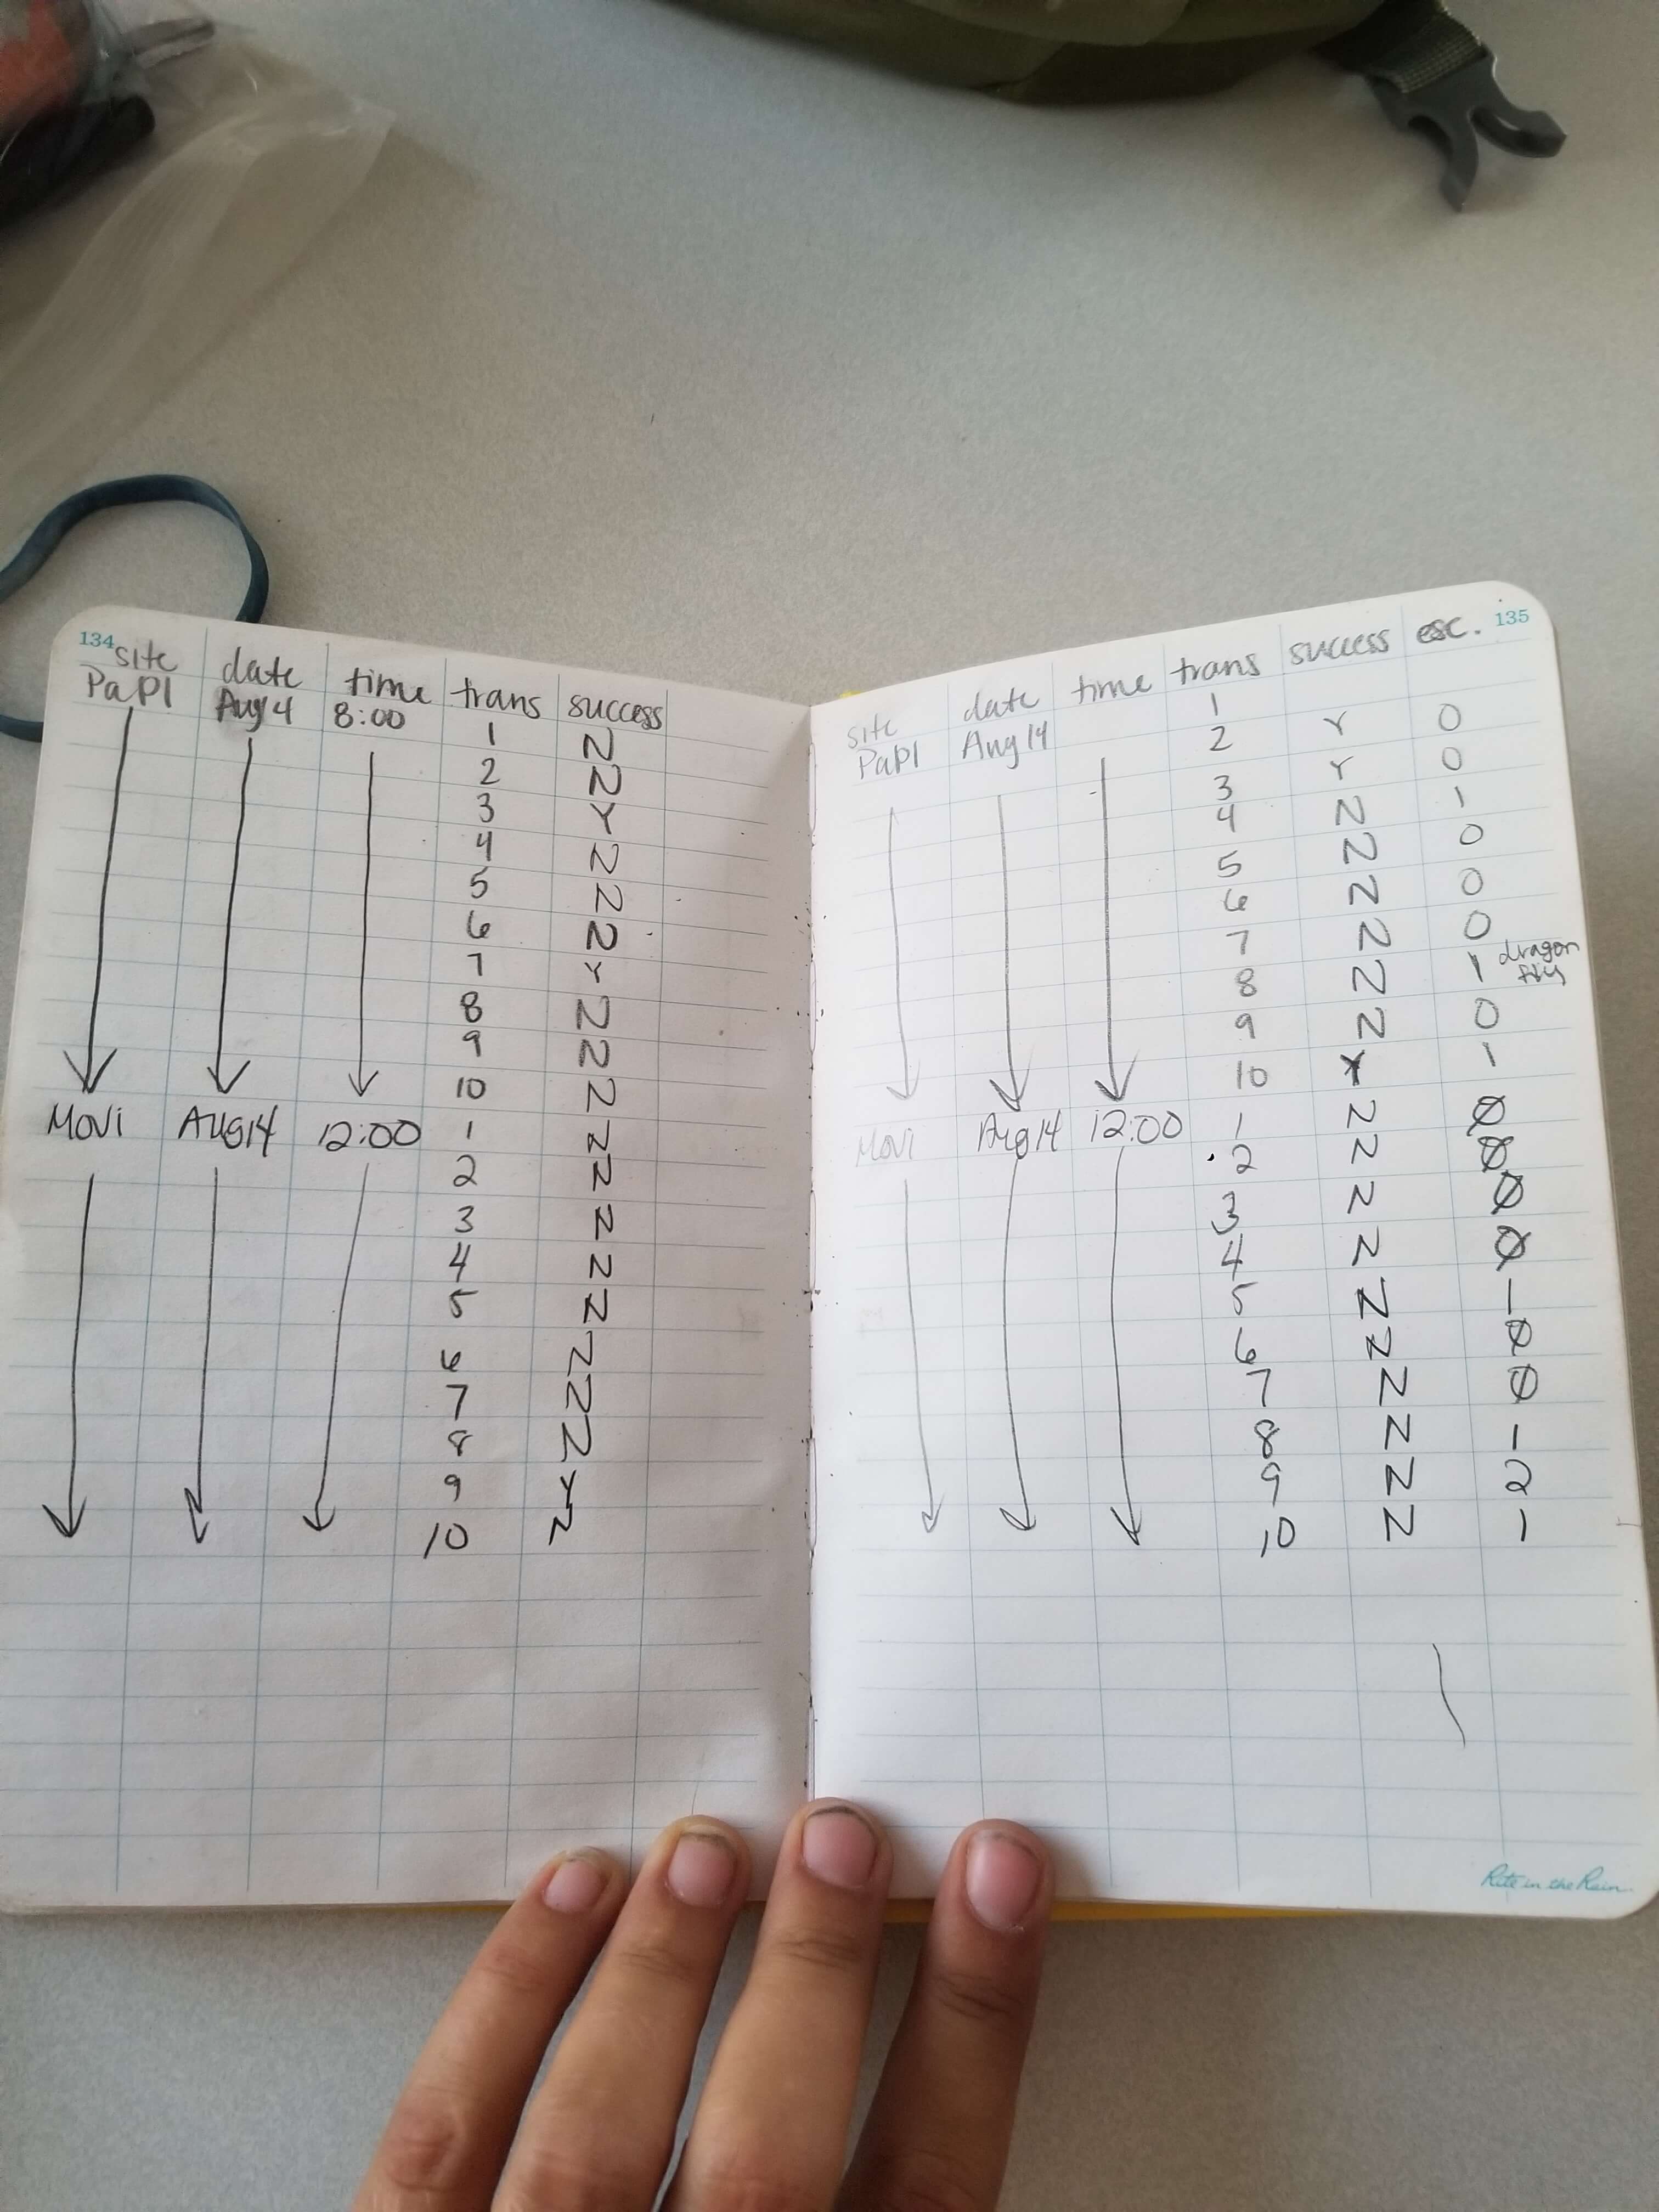 134
site date time trans success
PaP1 Aug 14 8:00 1 N
2 N
3 Y
4 N
5 N
6 N
7 Y
8 N
9 N
10 N
Movi Aug 14 12:00 1 N
2 N
3 N
4 N
5 N
6 N
7 N
8 N
9 Y
10 N
135
site date time trans success esc.
PaP1 Aug 14 1
2 Y 0
3 Y 0
4 N 1
5 N 0
6 N 0
7 N 0
8 N 1 dragon
fly
9 N 0
10 Y 1
Movi Aug 14 12:00 1 N 0
2 N 0
3 N 0
4 N 0
5 N 1
6 N 0
7 N 0
8 N 1
9 N 2
10 N 1
Rite in the Rain